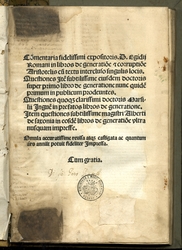 Cōmentaria fidelissimi expositoris. D. Egidij
Romani in libros de generatiōe ⁊ corruptiōe
Aristotelis cū textu intercluso singulis locis.
Questiones itē subtilissime eiusdem doctoris
super primo libro de generatione: nunc quidē
primum in publicum prodeuntes.
Questiones quoqꝫ clarissimi doctoris Marsi⸗
lij Inguē in prefatos libros de generatione.
Item questiones subtilissime magistri Alberti
de saxonia in eosdē libros de generatiōe vltra
nusquam impresse.
Omnia accuratissime reuisa atqꝫ castigata: ac quantum
ars anniti potuit fideliter Impressa.
Cum gratia.